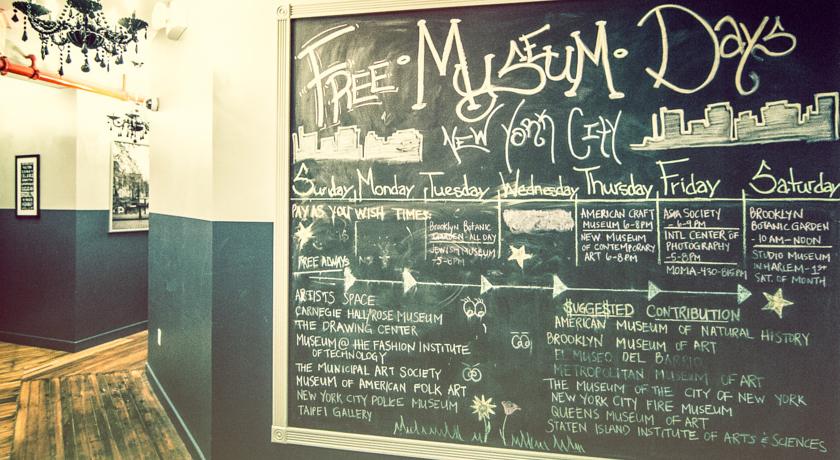 Free · Museum · Days
New York City
Sunday Monday Tuesday Wednesday Thursday Friday Saturday
PAY AS YOU WISH TIMES:
Brooklyn Botanic
GARDEN - ALL DAY
JEWISH MUSEUM
-5-8PM
AMERICAN CRAFT
MUSEUM 6-8PM
NEW MUSEUM
OF CONTEMPORARY
ART 6-8PM
ASIA SOCIETY
-6-9PM
INTL CENTER OF
PHOTOGRAPHY
-5-8PM
MOMA-430-815PM
BROOKLYN
BOTANIC GARDEN
-10AM-NOON
STUDIO MUSEUM
IN HARLEM-1ST
SAT. OF MONTH
FREE ALWAYS
ARTISTS SPACE
CARNEGIE HALL/ROSE MUSEUM
THE DRAWING CENTER
MUSEUM@THE FASHION INSTITUTE
OF TECHNOLOGY
THE MUNICIPAL ART SOCIETY
MUSEUM OF AMERICAN FOLK ART
NEW YORK CITY POLICE MUSEUM
TAIPEI GALLERY
$UGGESTED CONTRIBUTION
AMERICAN MUSEUM OF NATURAL HISTORY
BROOKLYN MUSEUM OF ART
EL MUSEO DEL BARRIO
METROPOLITAN MUSEUM OF ART
THE MUSEUM OF THE CITY OF NEW YORK
NEW YORK CITY FIRE MUSEUM
QUEENS MUSEUM OF ART
STATEN ISLAND INSTITUTE OF ARTS & SCIENCES